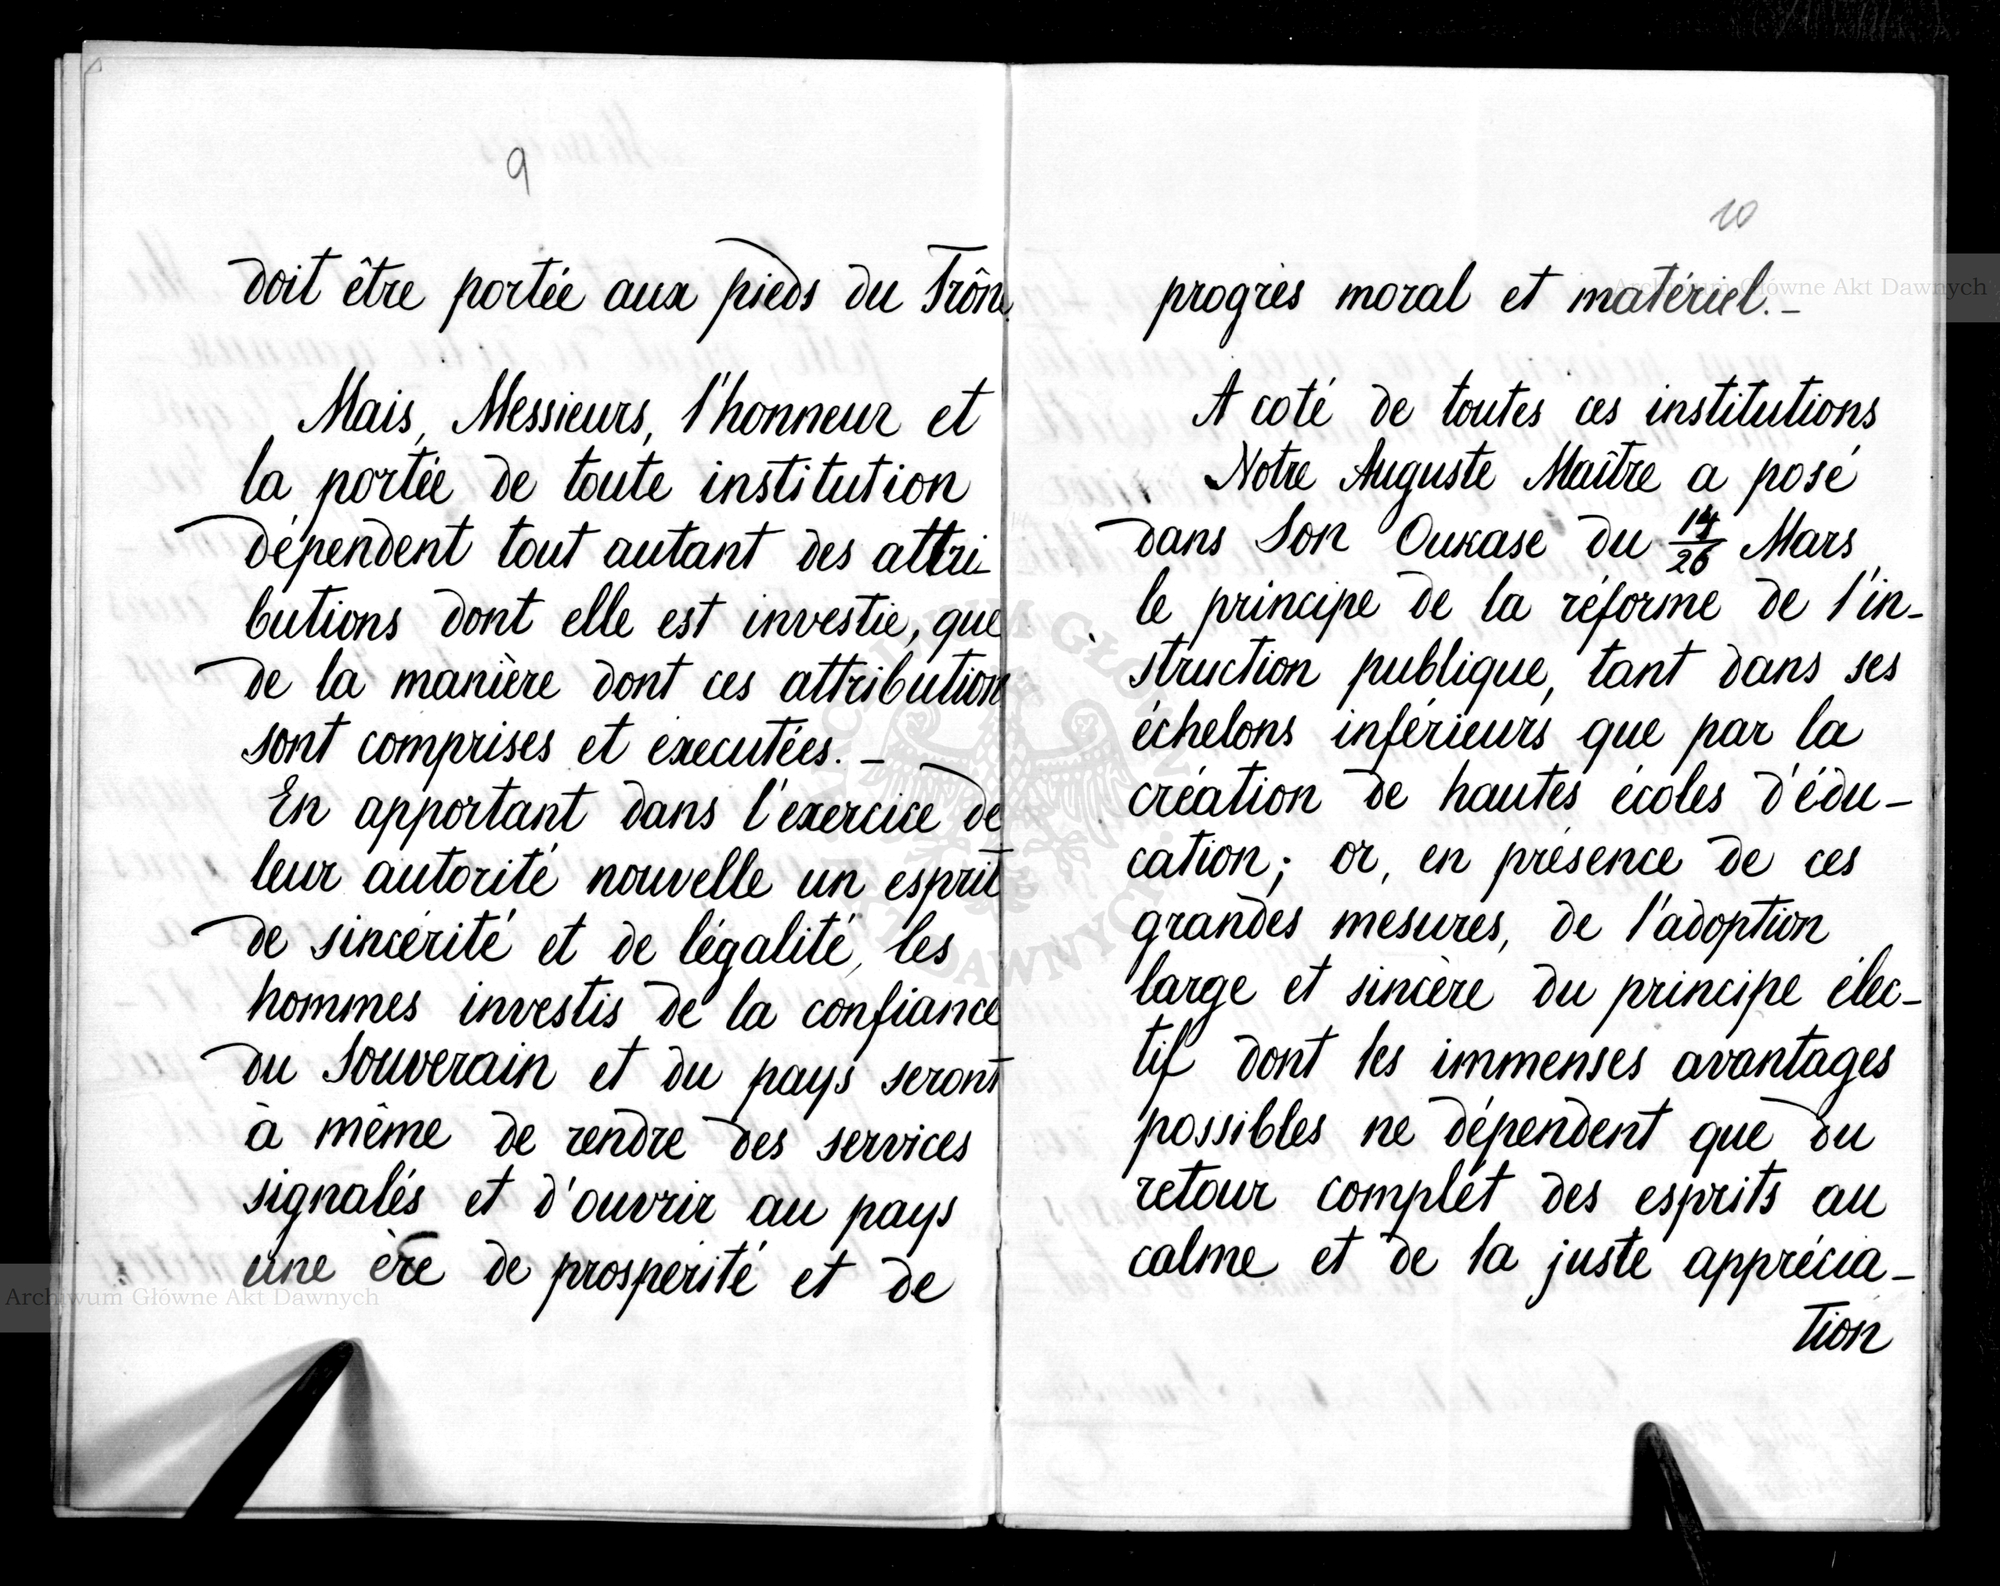 9
doit être portée aux pieds du Trône
Mais, Messieurs, l'honneur et
la portée de toute institution
dépendent tout autant des attri-
butions dont elle est investie, que
de la manière dont ces attributions
sont comprises et executées. -
En apportant dans l'exercice de
leur autorité nouvelle un esprit
de sincérité et de légalité, les
hommes investis de la confiance
du Souverain et du pays seront
à même de rendre des services
signalés et d'ouvrir au pays
une ère de prosperité et de
10
progrès moral et matériel. -
A coté de toutes ces institutions
Notre Auguste Maître a posé
dans Son Oukase du 14/26 Mars
le principe de la réforme de l'in-
struction publique, tant dans ses
échelons inférieurs que par la
création de hautes écoles d'édu-
cation; or, en présence de ces
grandes mesures, de l'adoption
large et sincère du principe élec-
tif dont les immenses avantages
possibles ne dépendent que du
retour complet des esprits au
calme et de la juste apprécia-
tion
Archiwum Główne Akt Dawnych
Archiwum Główne Akt Dawnych
ARCHIWUM GŁÓWNE AKT DAWNYCH